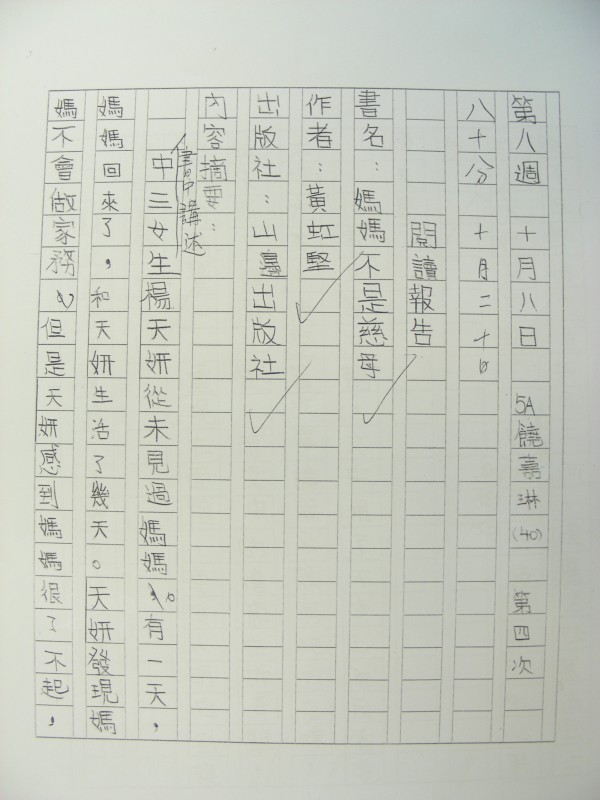 第八週 十月八日 5A 饒嘉琳(40) 第四次
八十分 十月二十日
閱讀報告
書名：媽媽不是慈母
作者：黃虹堅
出版社：山邊出版社
內容摘要：
書中講述
中三女生楊天妍從未見過媽媽。有一天，
媽媽回來了，和天妍生活了幾天。天妍發現媽
媽不會做家務，但是天妍感到媽媽很了不起，